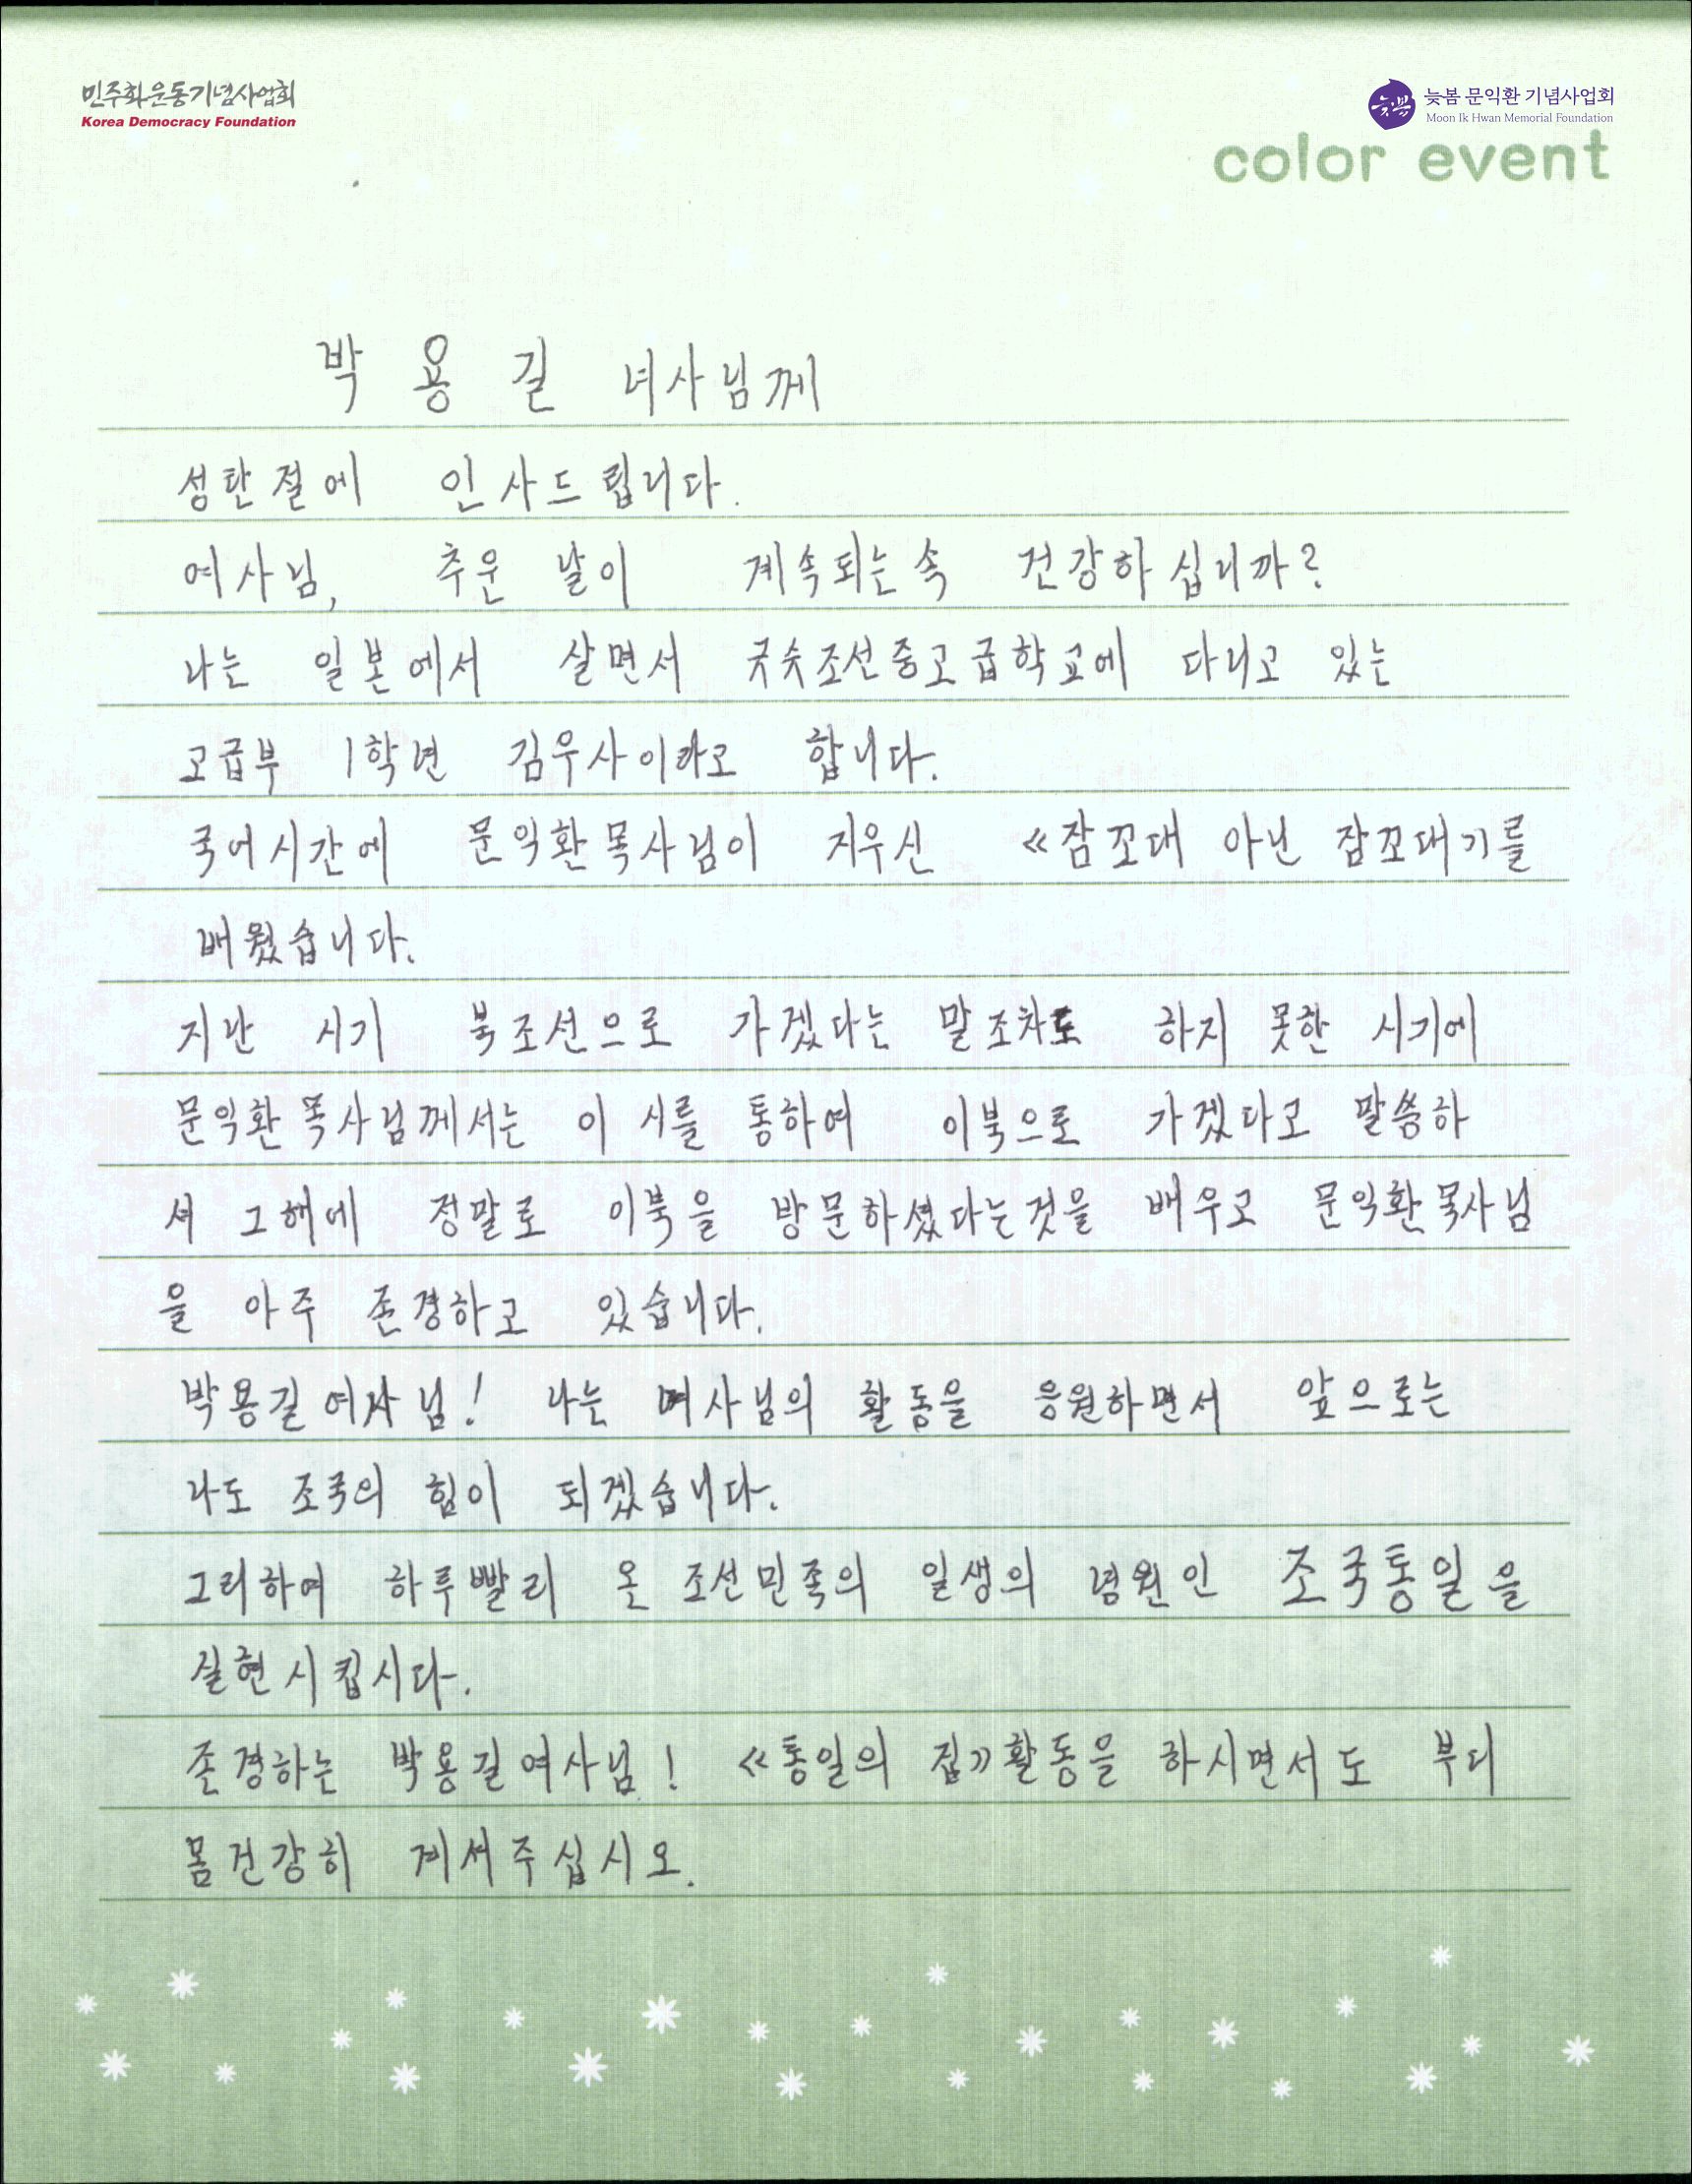 민주화운동기념사업회
Korea Democracy Foundation
늦봄 늦봄 문익환 기념사업회
Moon Ik Hwan Memorial Foundation
color event
박 용 길 녀사님께
성탄절에 인사드립니다.
여사님, 추운 날이 계속되는속 건강하십니까?
나는 일본에서 살면서 규슈조선중고급학교에 다니고 있는
고급부 1학년 김우사이라고 합니다.
국어시간에 문익환목사님이 지우신 《잠꼬대 아닌 잠꼬대기를
배웠습니다.
지난 시기 북조선으로 가겠다는 말조차도 하지 못한 시기에
문익환목사님께서는 이 시를 통하여 이북으로 가겠다고 말씀하
셔 그해에 정말로 이북을 방문하셨다는것을 배우고 문익환목사님
을 아주 존경하고 있습니다.
박용길여사님! 나는 여사님의 활동을 응원하면서 앞으로는
나도 조국의 힘이 되겠습니다.
그리하여 하루빨리 온 조선민족의 일생의 념원인 조국통일을
실현시킵시다.
존경하는 박용길여사님! 《통일의 집》활동을 하시면서도 부디
몸건강히 계셔주십시오.